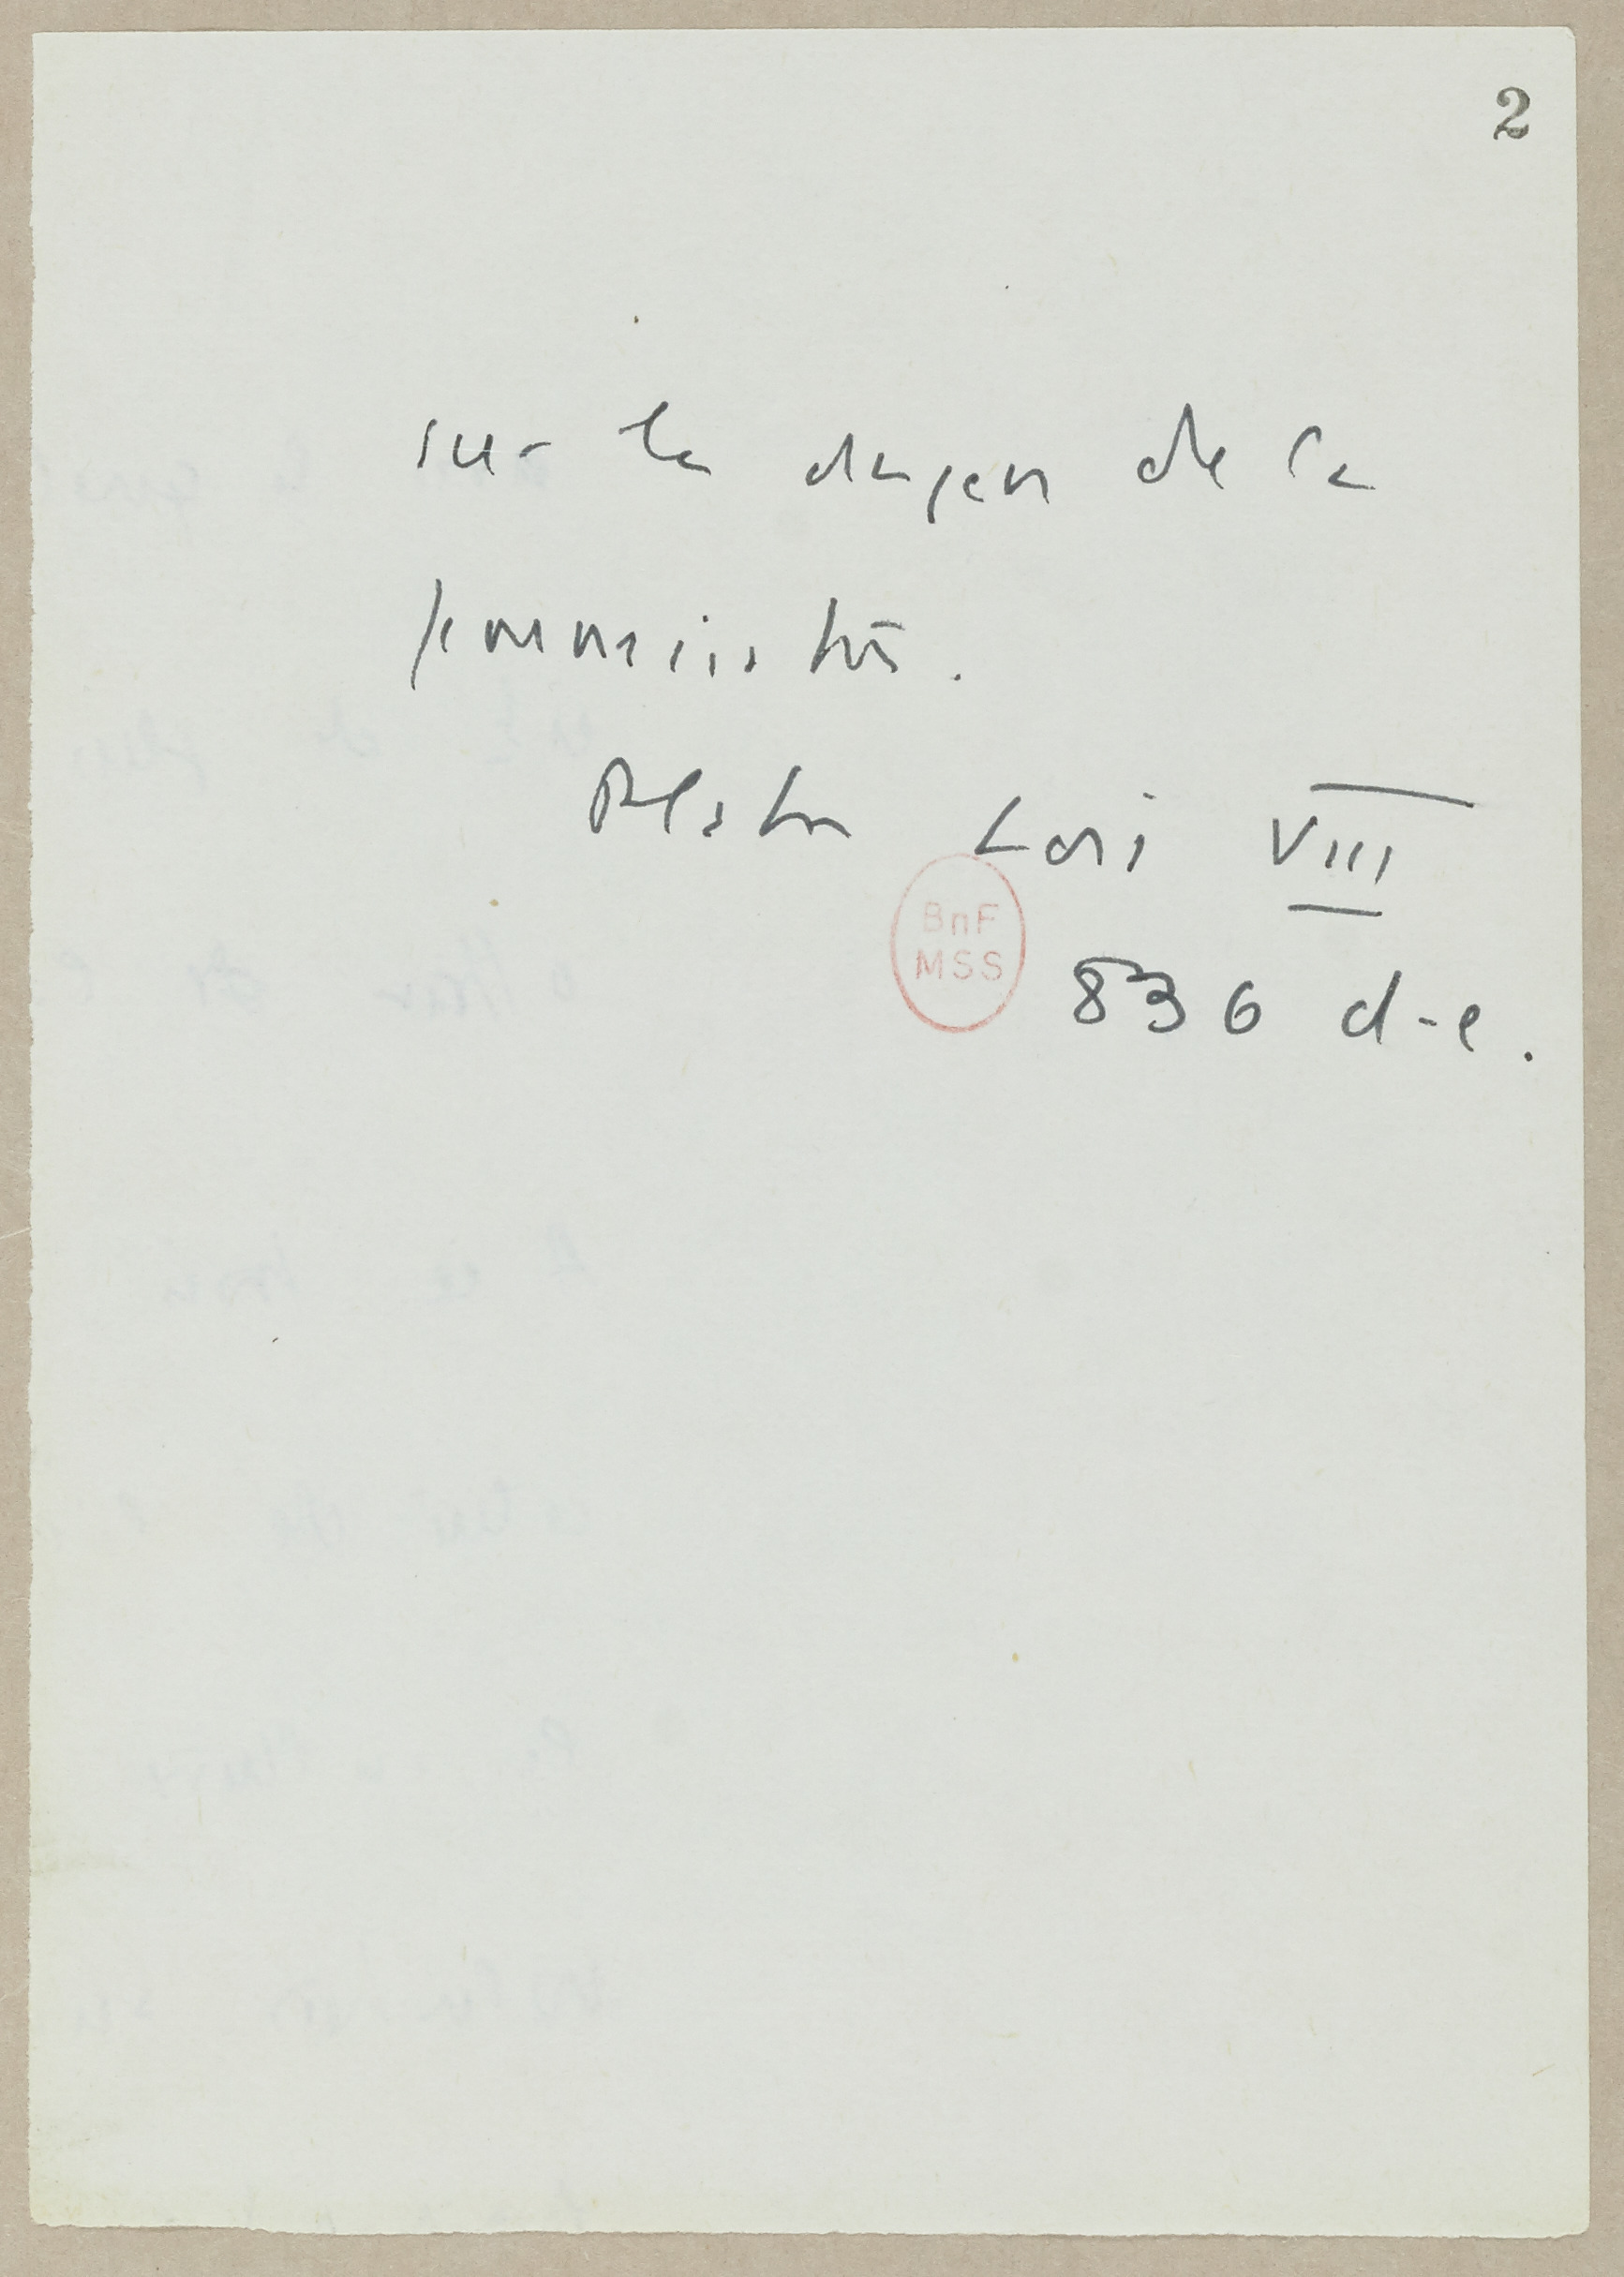 2
sur le danger de la
permissivité.
Platon Lois VIII
BnF
MSS
836 d-e.